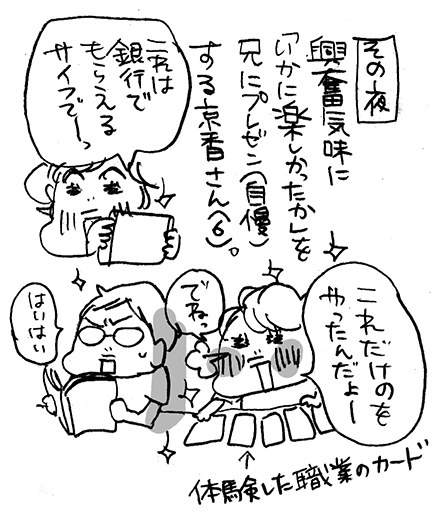 その夜
興奮気味に
「いかに楽しかったか」を
兄にプレゼン(自慢)
する京香さん(6)。
これは
銀行で
もらえる
サイフでーっ
これだけのを
やったんだよー
でねっ
はいはい
↑
体験した職業のカード